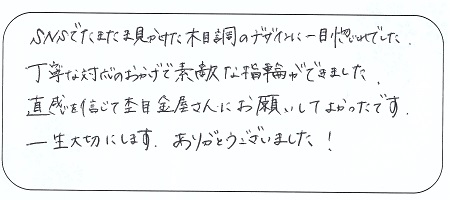 SNSでたまたま見かけた木目調のデザインに一目惚れでした.
丁寧な対応のおかげで素敵な指輪ができました.
直感を信じて杢目金屋さんにお願いしてよかったです.
一生大切にします. ありがとうございました!